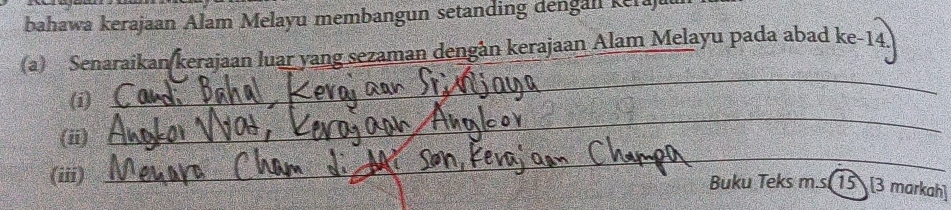 bahawa kerajaan Alam Melayu membangun setanding dengan
(a) Senaraikan kerajaan luar yang sezaman dengan kerajaan Alam Melayu pada abad ke-14.
(i) Candi Bahal, Kerajaan Sriwijaya
(ii) Angkor Wat, Kerajaan Angkor
(iii) Menara Cham di Mi Son, Kerajaan Champa
Buku Teks m.s. 15 [3 markah]